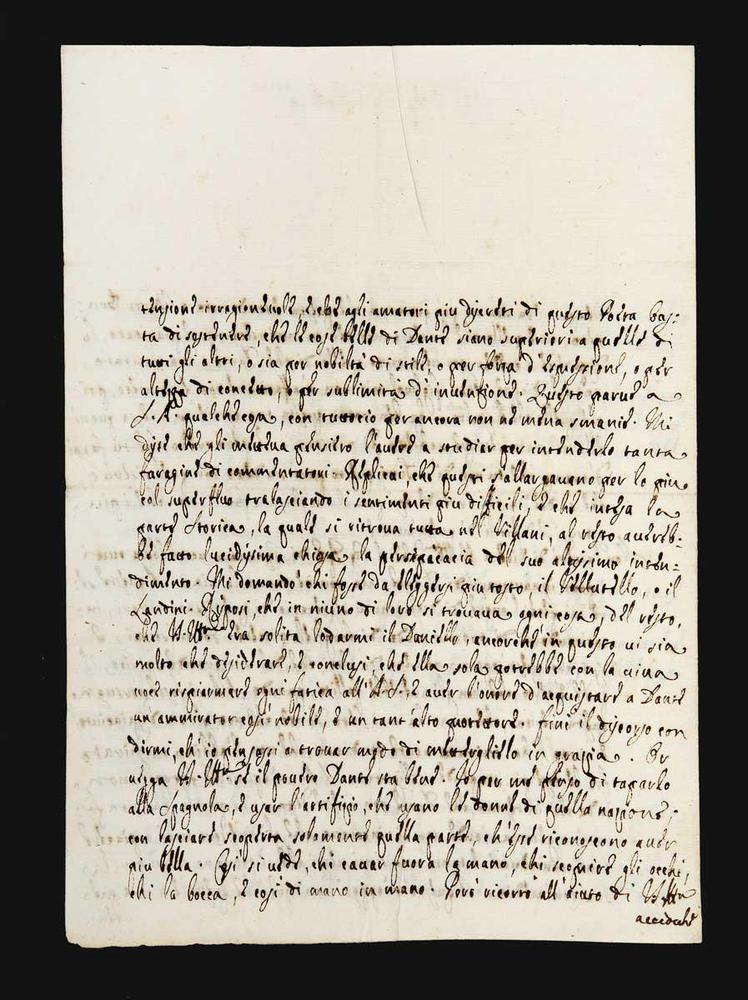 tensione irragionevole, e che agli amatori piu discreti di questo Poeta bas-
ta di sostenere, che le cose belle di Dante siano superiori a quelle di
tutti gli altri, o sia per nobiltà di stile, o per forza d'espressione, o per
altezza di concetto, o per sublimità d'invenzione. Questo parve a
S. A. qualche cosa, con tuttociò per ancora non ne mena smanie. Mi
disse che gli metteva pensiero l'avere a studiar per intenderlo tanta
faragine di commentatori. Replicai, che questi s'allargavano per lo piu
col superfluo tralasciando i sentimenti piu difficili, e che intesa la
parte storica, la quale si ritrova tutta nel Villani, al resto avereb-
be fatto lucidissima chiosa la perspicacia del suo altissimo inten-
dimento. Mi domandò chi fosse da leggersi piu tosto, il Vellutello, o il
Landini. Risposi, che in niuno di loro si trovava ogni cosa, del resto,
che V. era solita lodarmi il Daniello, ancorche in questo vi sia
molto che desiderare, e conclusi, che ella sola potrebbe con la viva
voce risparmiare ogni fatica all'A. S. e aver l'onore d'acquistare a Dante
un ammirator così nobile, e un tant'alto protettore. Finì il discorso con
dirmi, ch'io pensassi a trovar modo di metterglielo in grazia. Or
vegga V. se il povero Dante sta bene. Io per me penso di tapparlo
alla Spagnola, e usar l'artifizio, che usano le donne di quella nazione,
con lasciare scoperta solamente quella parte, ch'esse riconoscono aver
piu bella. Così si vede, chi cavar fuora la mano, chi scoprire gli occhi,
chi la bocca, e così di mano in mano. Però ricorro all'aiuto di V.
accioche